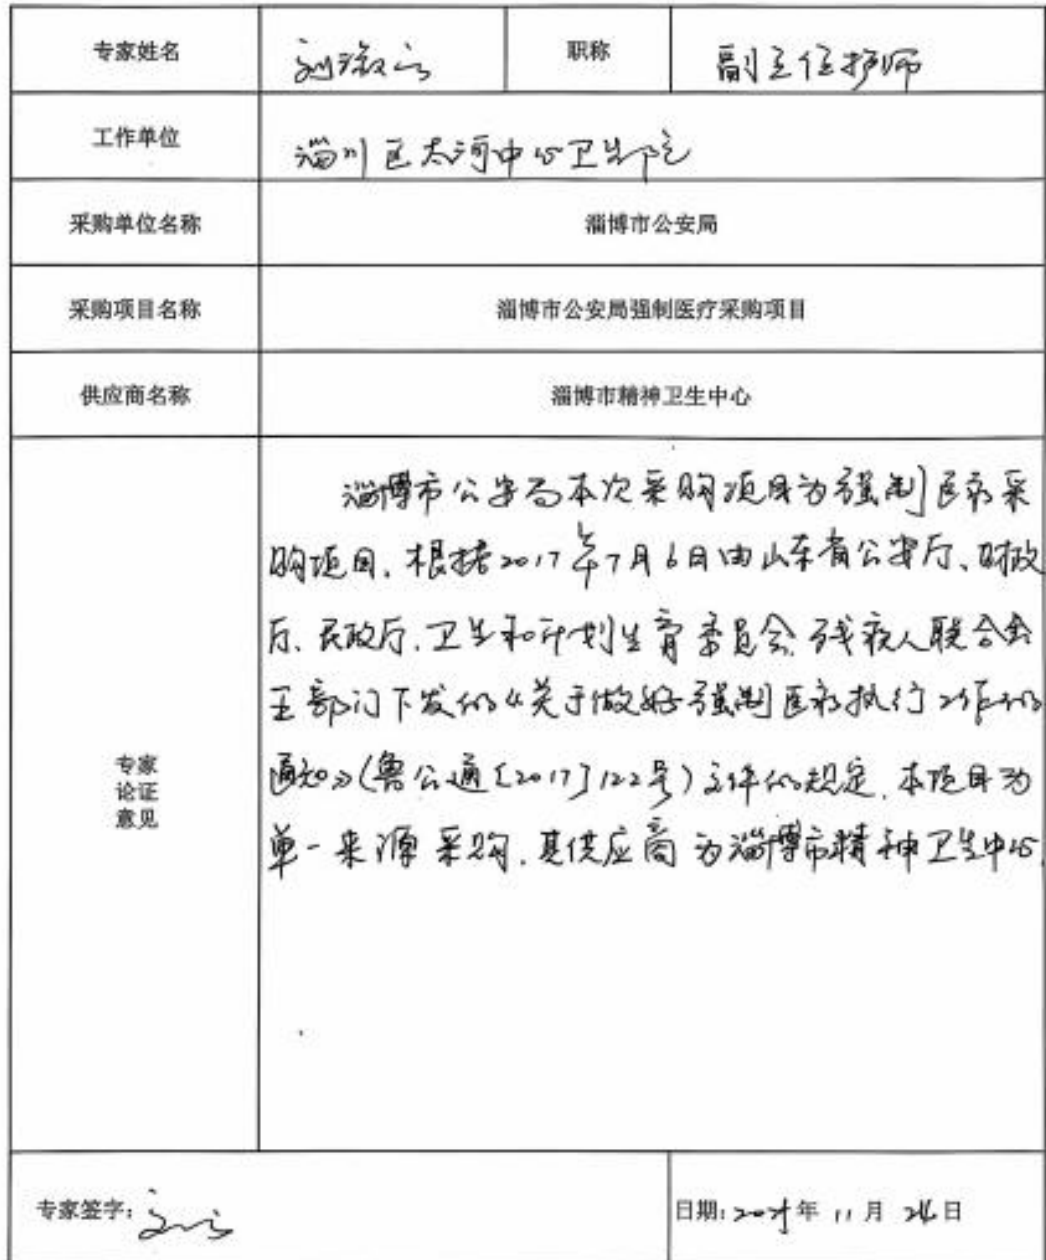 专家姓名 刘 职称 副主任护师
工作单位 淄川区太河中心卫生院
采购单位名称 淄博市公安局
采购项目名称 淄博市公安局强制医疗采购项目
供应商名称 淄博市精神卫生中心
淄博市公安局本次采购项目为强制医疗采
购项目,根据2017年7月6日由山东省公安厅、财政
厅、民政厅、卫生和计划生育委员会、残疾人联合会
五部门下发的《关于做好强制医疗执行工作的
通知》(鲁公通〔2017〕122号)文件的规定,本项目为
单一来源采购,其供应商为淄博市精神卫生中心.
专家
论证
意见
专家签字: 日期: 年 11 月 日